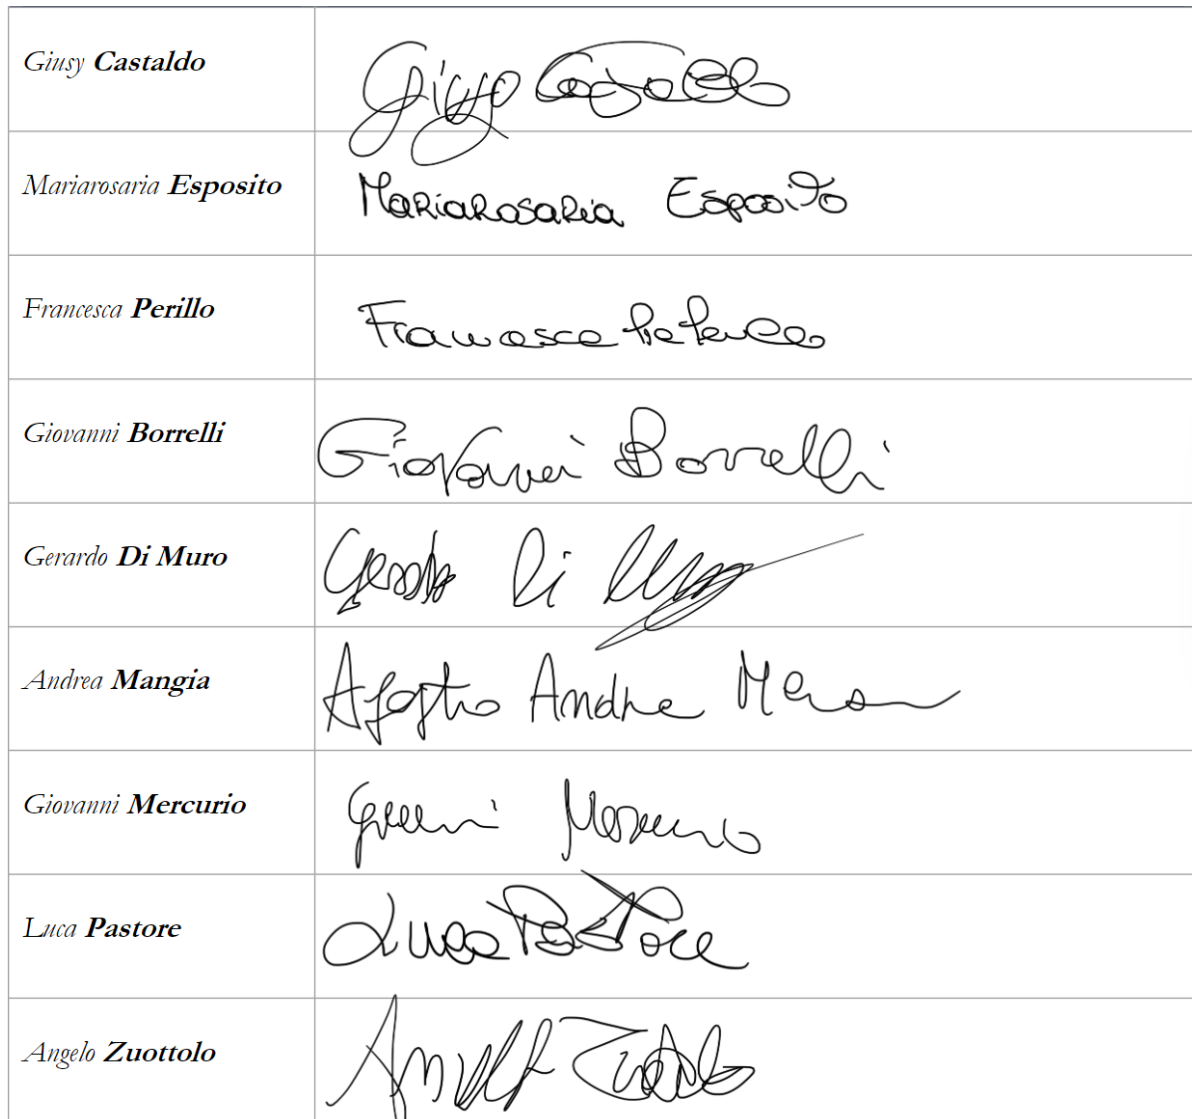 Giusy Castaldo
Giusy Castaldo
Mariarosaria Esposito
Mariarosaria Esposito
Francesca Perillo
Francesca Pia Perillo
Giovanni Borrelli
Giovanni Borrelli
Gerardo Di Muro
Gerardo Di Muro
Andrea Mangia
Andrea
Giovanni Mercurio
Mercurio
Luca Pastore
Luca Pastore
Angelo Zuottolo
Angelo